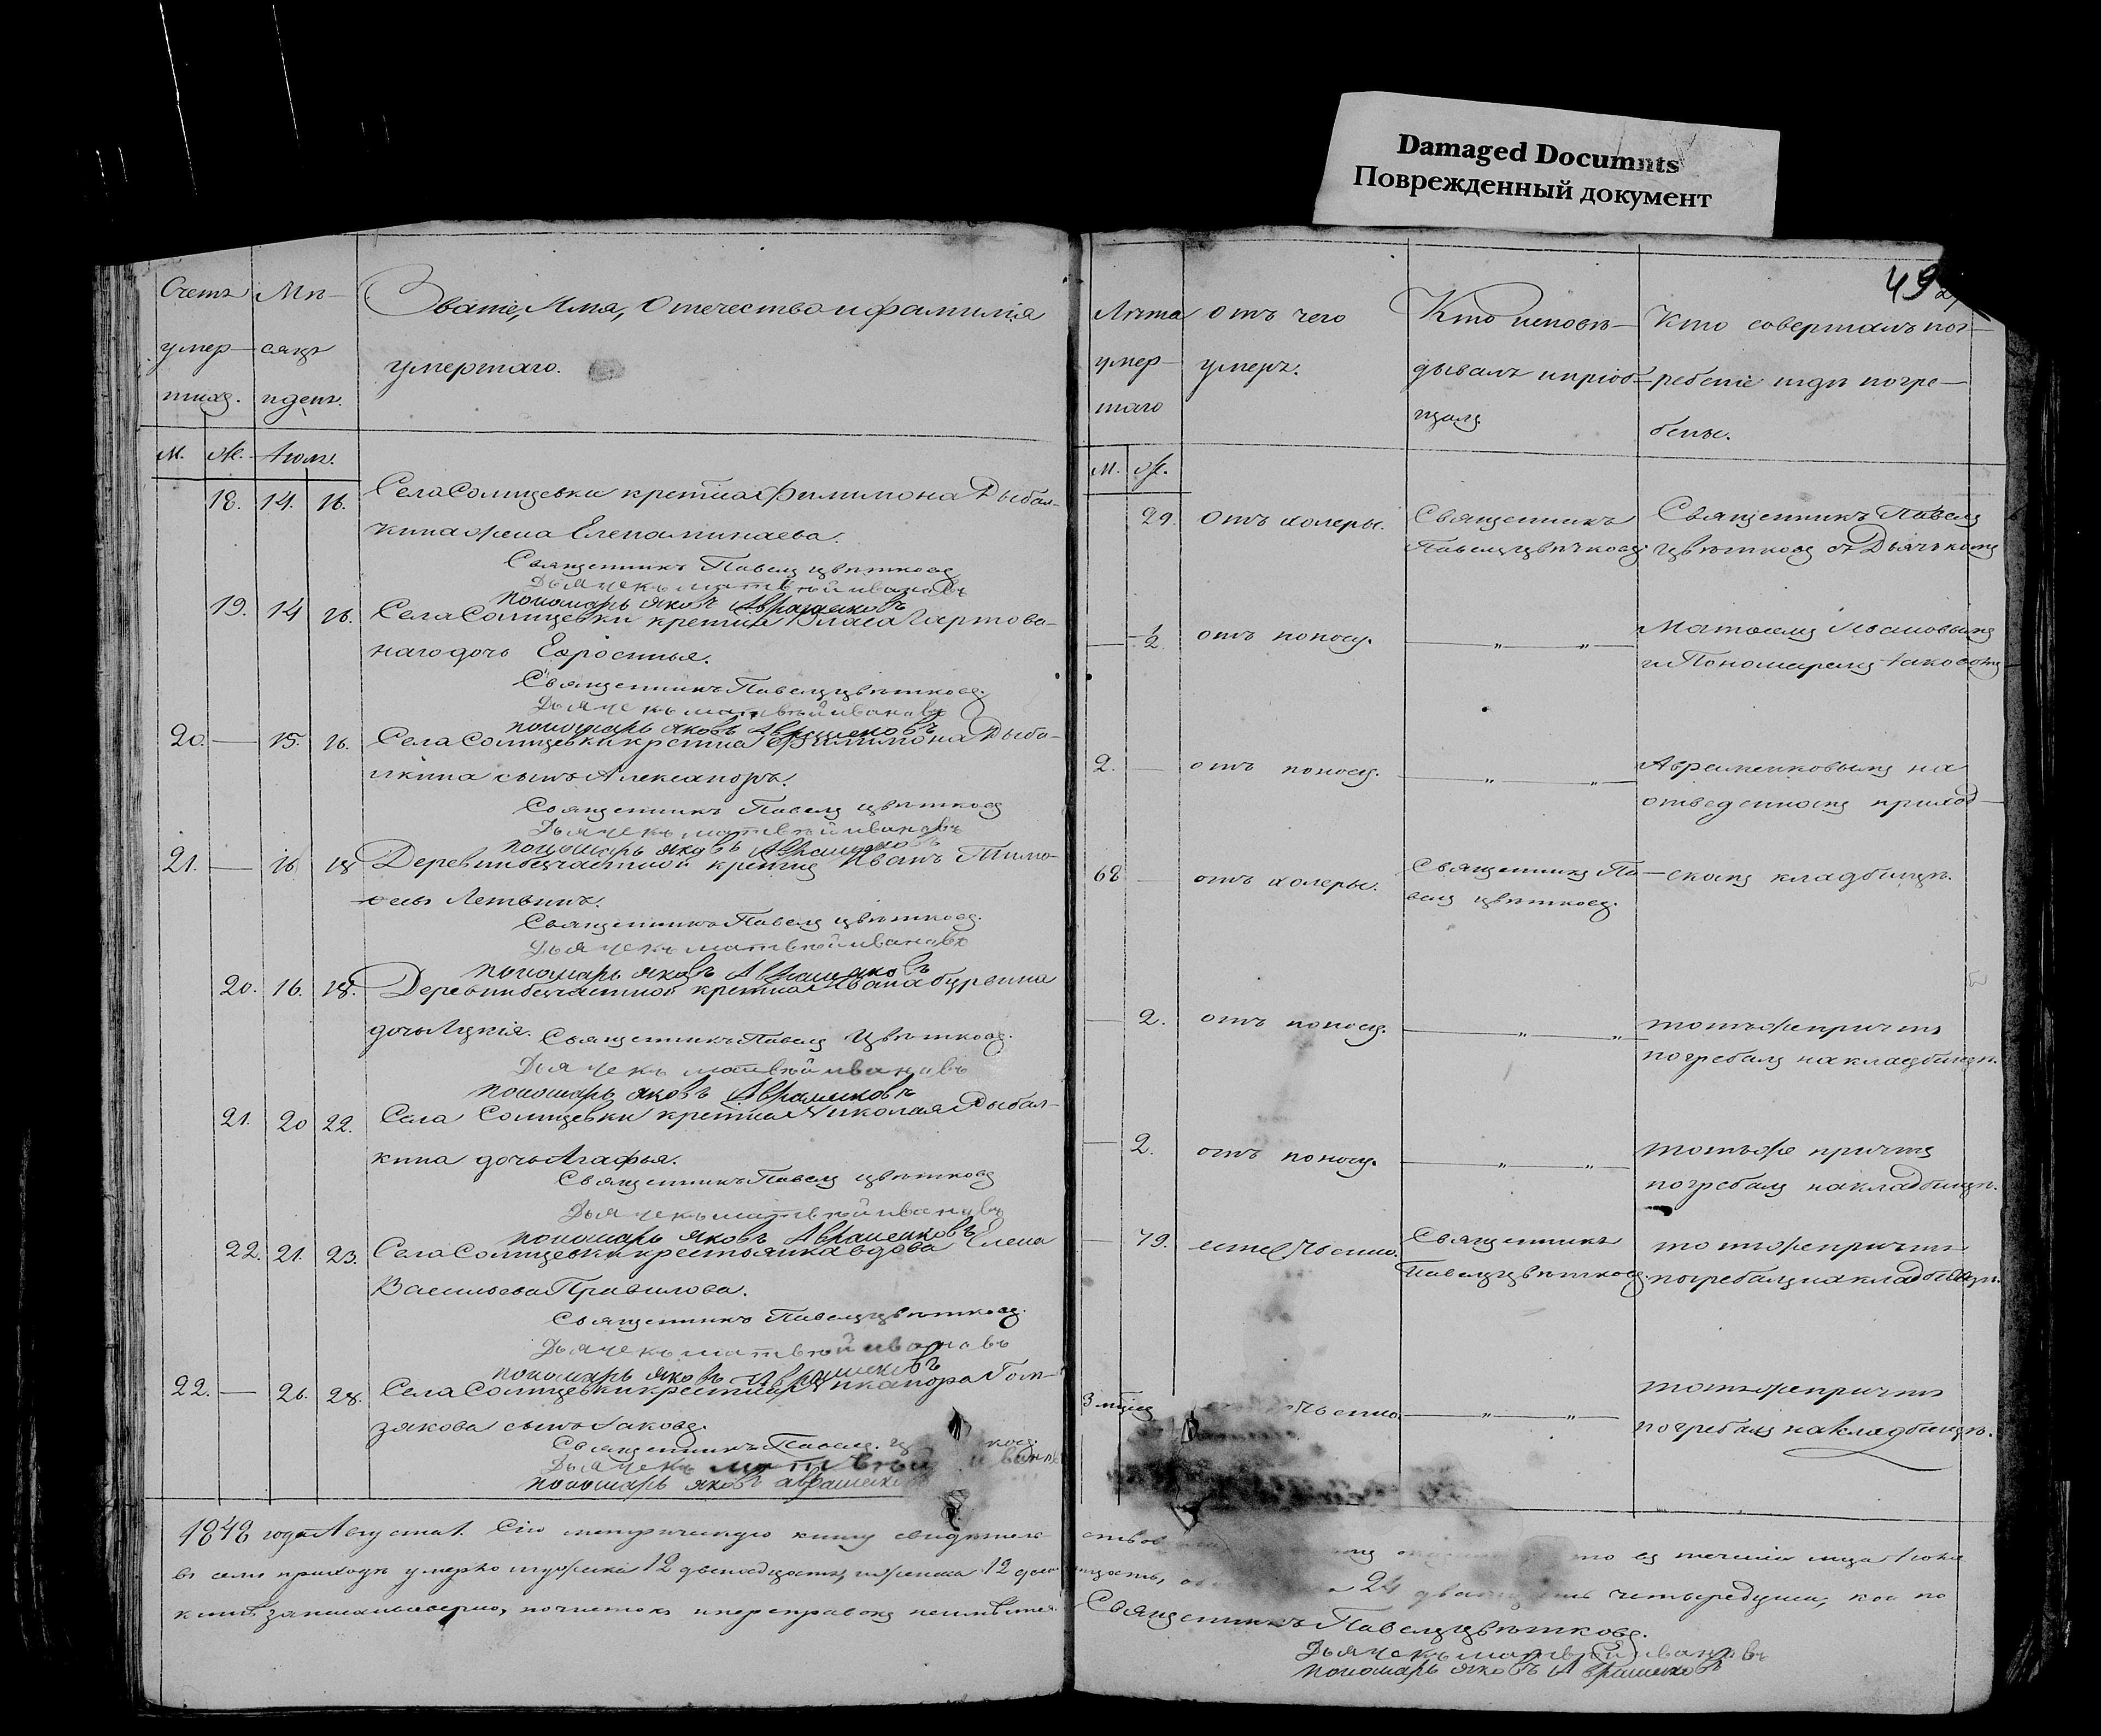 Damaged Documnts
Поврежденный документ
Счетъ
умер-
шихъ.
Мѣ-
сяцъ
и день.
Званіе, Имя, Отечество и фамилія
умершаго.
М. Ж. Іюля.
18. 14. 16. Села Солнцевки крестіа Филимона Рыбал-
кина жена Елена Минаева.
Священникъ Павелъ Цвѣтковъ
Дьячекъ Матвѣй Ивановъ
Пономарь Яковъ Авраменковъ
19. 14 16. Села Солнцевки крестіа Власа
наго дочь Ефросинья.
Священникъ Павелъ Цвѣтковъ.
Дьячекъ Матвѣй Ивановъ
Пономарь Яковъ Авраменковъ
20. — 15. 16. Села Солнцевки крестіа Филимона Рыба-
лкина сынъ Александръ.
Священникъ Павелъ Цвѣтковъ
Дьячекъ Матвѣй Ивановъ
Пономарь Яковъ Авраменковъ
21. — 16 18 Деревни Безчастной Иванъ Тимо-
Священникъ Павелъ Цвѣтковъ.
Дьячекъ Матвѣй Ивановъ
Пономарь Яковъ Авраменковъ
20. 16. 18. Деревни Безчастной крестіа Ивана Бурвина
дочь Лукія. Священникъ Павелъ Цвѣтковъ.
Дьячекъ Матвѣй Ивановъ
Пономарь Яковъ Авраменковъ
21. 20 22. Села Солнцевки крестіа Николая Рыбал-
кина дочь Агафья.
Священникъ Павелъ Цвѣтковъ
Дьячекъ Матвѣй Ивановъ
Пономарь Яковъ Авраменковъ
22. 21. 23. Села Солнцевки крестьянка вдова Елена
Васильева Правилова.
Священникъ Павелъ Цвѣтковъ.
Дьячекъ Матвѣй Ивановъ
Пономарь Яковъ Авраменковъ
22. — 26. 28. Села Солнцевки крестіа Никанора Гом-
зякова сынъ Іаковъ.
Священникъ Павелъ
Дьячекъ Матвѣй Ивановъ
Пономарь Яковъ
1848 года Августа 1. Сію метрическую книгу свидѣтель-
въ семъ приходѣ умерло мужеска 12 двенадцать, женска 12
книгѣ записаны верно, почистокъ и переправокъ неимѣется.
49
Лѣта
умер-
шаго
отъ чего
умеръ.
Кто исповѣ-
дывалъ и пріоб-
щалъ.
Кто совершалъ пог-
ребеніе и гдѣ погре-
бены.
М. Ж.
29. отъ холеры. Священникъ Священникъ Павелъ
Павелъ Цвѣтковъ. Цвѣтковъ съ Дьячкомъ
1/2 отъ поносу. — " — " — Матвеемъ Ивановымъ
и Пономаремъ Іаковомъ
2. — отъ поносу. — " — " — Авраменковымъ на
отведенномъ приход-
68 — отъ холеры. Священникъ Па- скомъ кладбищѣ.
велъ Цвѣтковъ.
— 2. отъ поносу. — " — " — тотъ же причтъ
погребалъ на кладбищѣ.
— 2. отъ поносу. — " — " — тотъ же причтъ
погребалъ на кладбищѣ.
— 79. Священникъ тотъ же причтъ
Павелъ Цвѣтковъ. погребалъ на кладбищѣ.
3 — " — " — тотъ же причтъ
погребалъ на кладбищѣ.
что въ теченіи мца Іюля
24 двадцать четыре души, кои по
Священникъ Павелъ Цвѣтковъ.
Дьячекъ Матвѣй Ивановъ
Пономарь Яковъ Авраменковъ